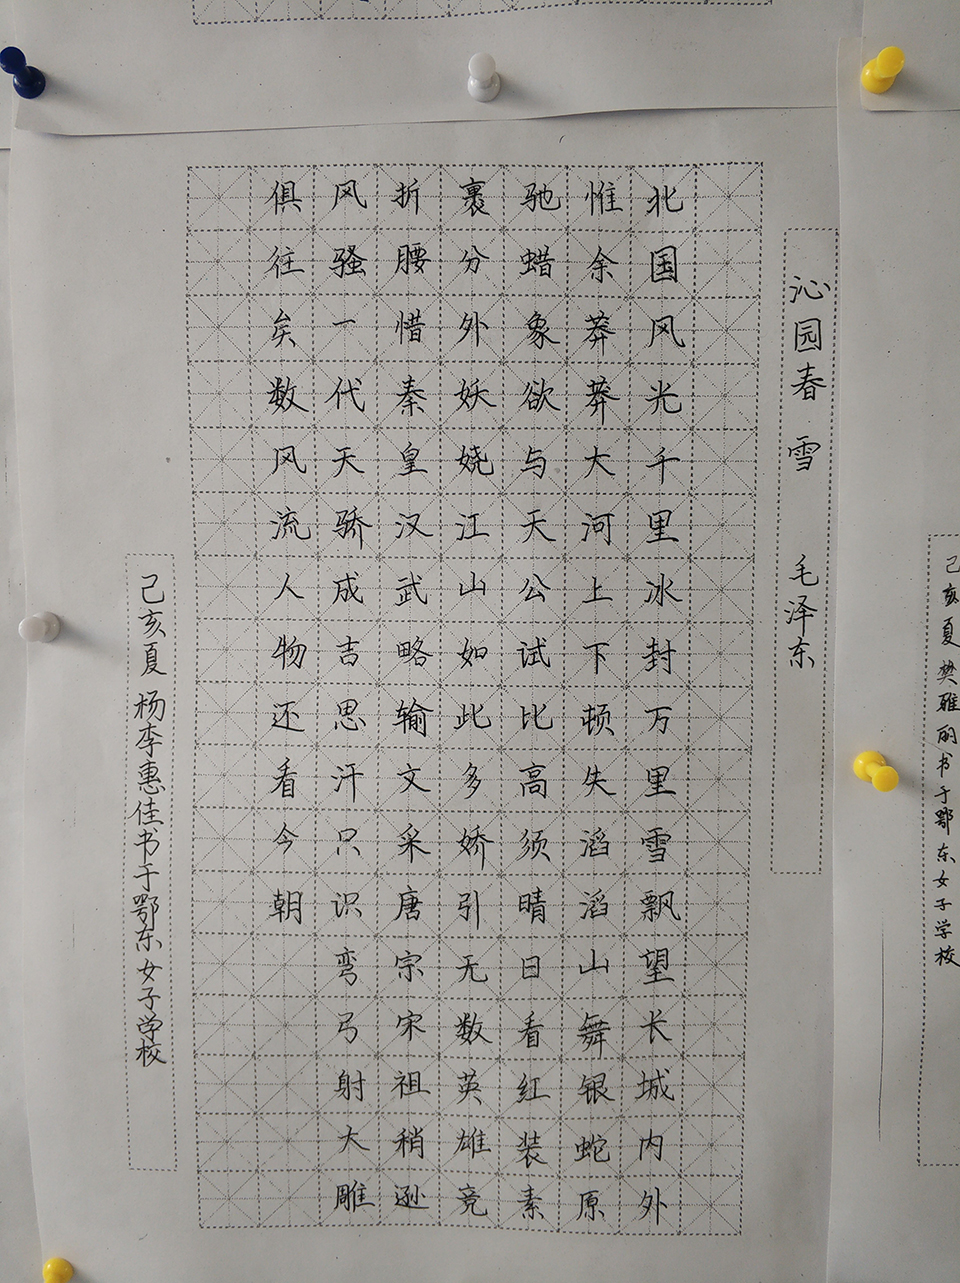 沁园春 雪 毛泽东
北国风光千里冰封万里雪飘望长城内外
惟余莽莽大河上下顿失滔滔山舞银蛇原
驰蜡象欲与天公试比高须晴日看红装素
裹分外妖娆江山如此多娇引无数英雄竞
折腰惜秦皇汉武略输文采唐宗宋祖稍逊
风骚一代天骄成吉思汗只识弯弓射大雕
俱往矣数风流人物还看今朝
己亥夏 杨李惠佳书于鄂东女子学校
己亥夏 樊雅丽书于鄂东女子学校